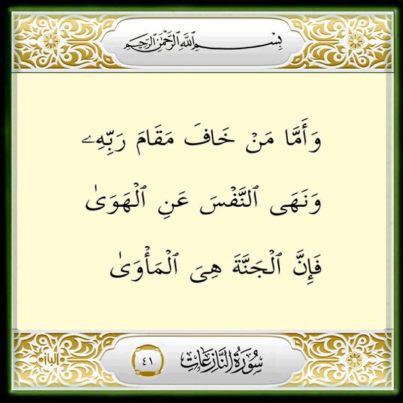 بِسْمِ اللَّهِ الرَّحْمَٰنِ الرَّحِيمِ
وَأَمَّا مَنْ خَافَ مَقَامَ رَبِّهِۦ
وَنَهَى ٱلنَّفْسَ عَنِ ٱلْهَوَىٰ
فَإِنَّ ٱلْجَنَّةَ هِىَ ٱلْمَأْوَىٰ
سُورَةُ النَّازِعَاتِ ٤١